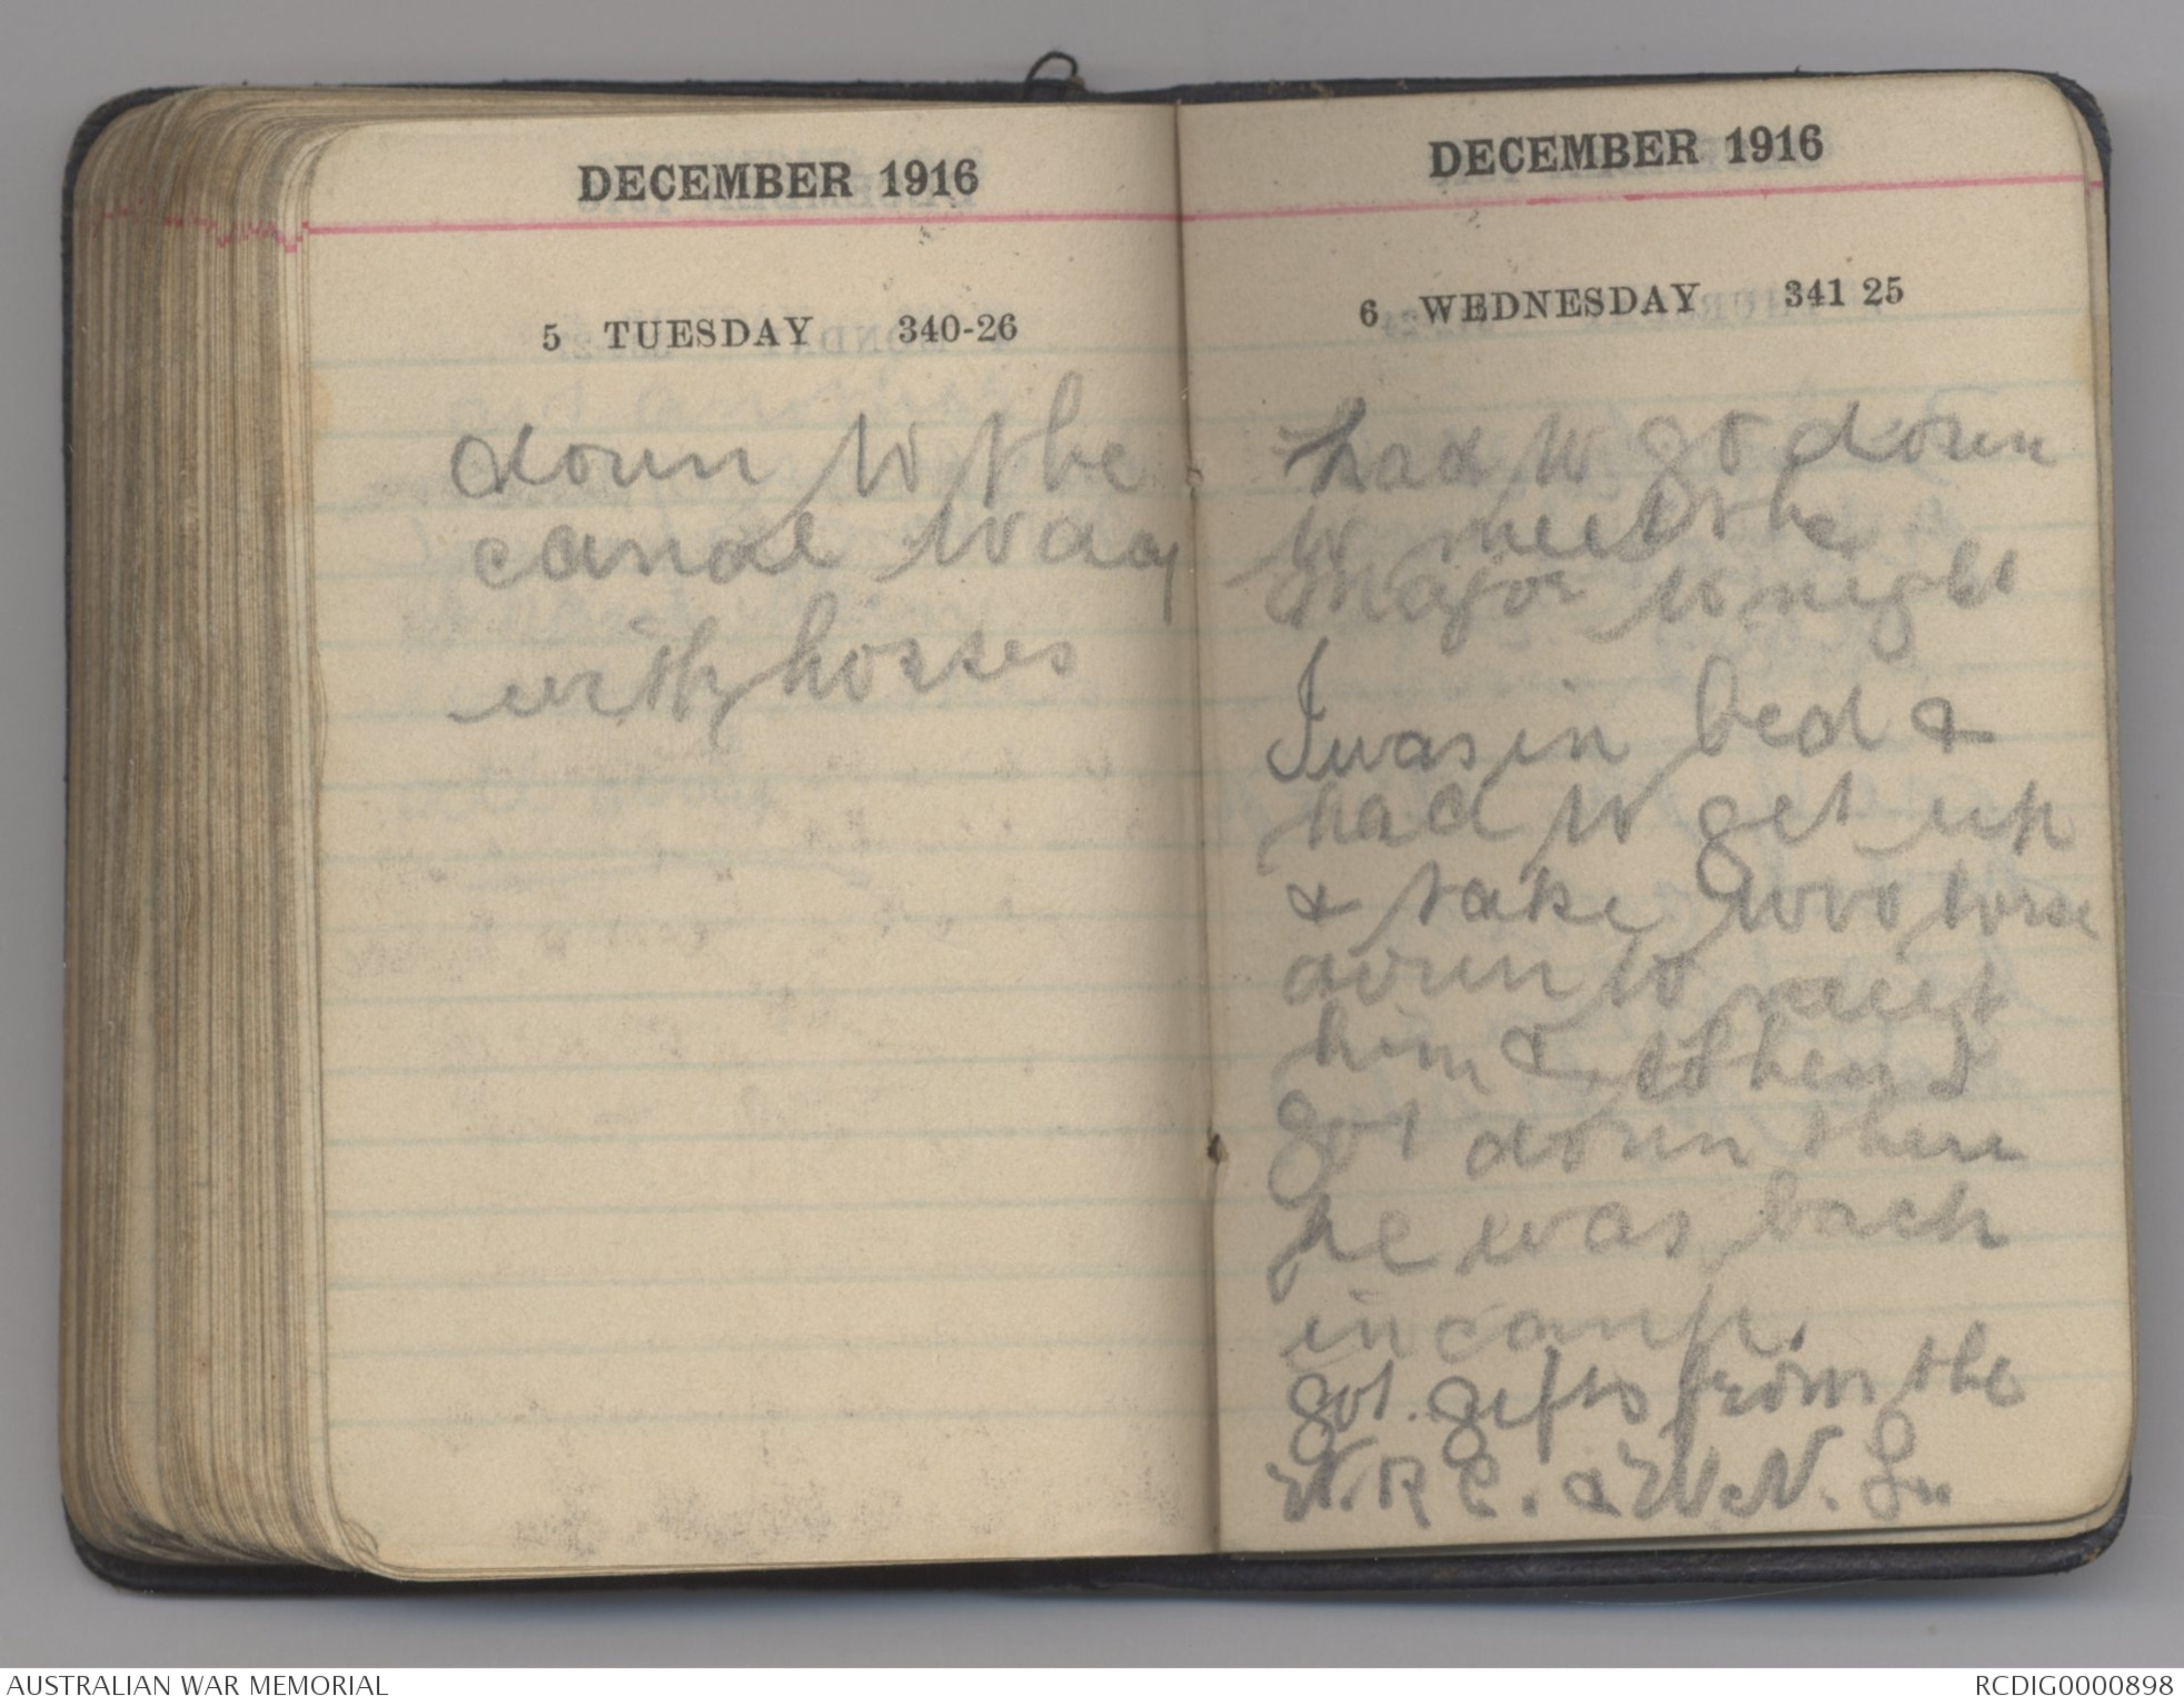 DECEMBER 1916
5 TUESDAY 340-26
down to the
canal today
with horses
DECEMBER 1916
6 WEDNESDAY 341 25
had to go down
to meet the
Major tonight
I was in bed &
had to get up
& take two horse
down to meet
him & when I
got down there
he was back
in camp.
got gifts from the
R C. &
AUSTRALIAN WAR MEMORIAL
RCDIG0000898